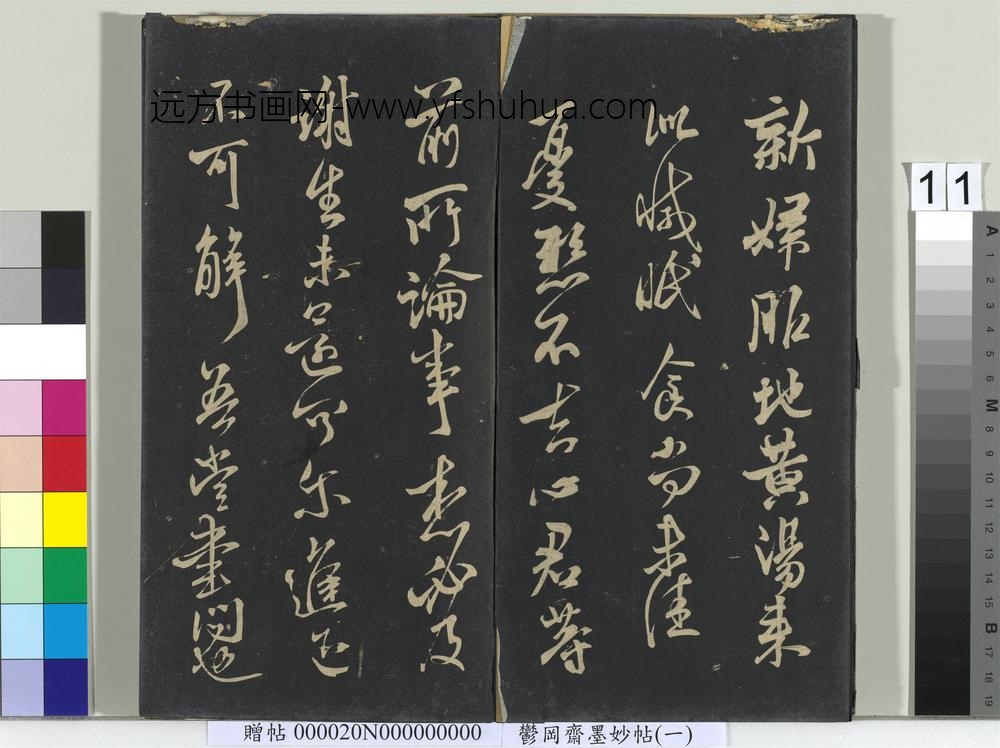 新婦服地黃湯來
似減眠食尚未佳
憂懸不去心君等
前所論事想必及
謝生未還可尔進退
不可解吾當書問也
远方书画网-www.yfshuhua.com
11
A 1 2 3 4 5 6 M 8 9 10 11 12 13 14 15 B 17 18 19
贈帖 000020N000000000 鬱岡齋墨妙帖(一)